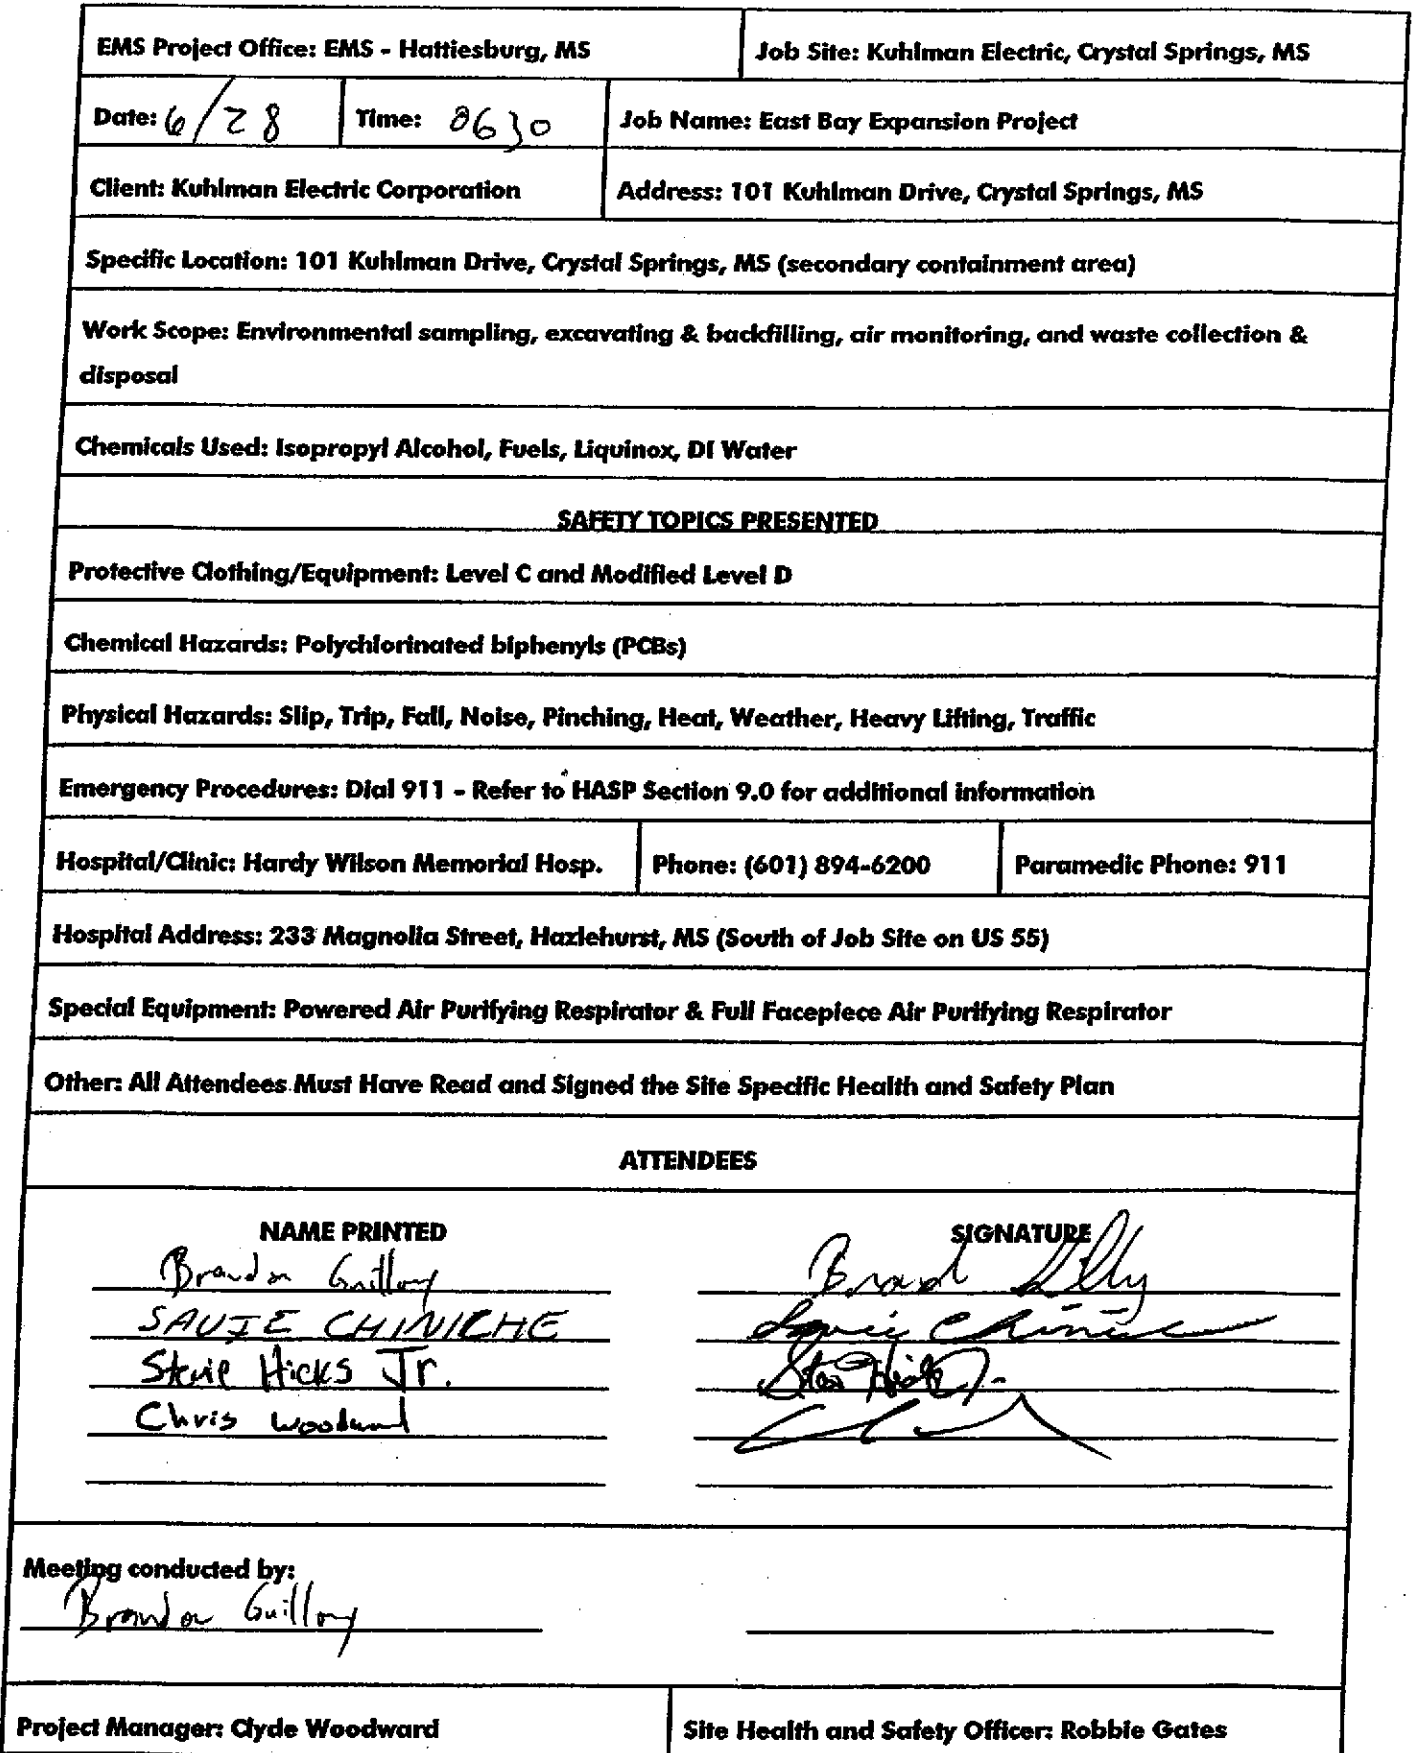 EMS Project Office: EMS - Hattiesburg, MS Job Site: Kuhlman Electric, Crystal Springs, MS
Date: 6/28 Time: 0630 Job Name: East Bay Expansion Project
Client: Kuhlman Electric Corporation Address: 101 Kuhlman Drive, Crystal Springs, MS
Specific Location: 101 Kuhlman Drive, Crystal Springs, MS (secondary containment area)
Work Scope: Environmental sampling, excavating & backfilling, air monitoring, and waste collection &
disposal
Chemicals Used: Isopropyl Alcohol, Fuels, Liquinox, DI Water
SAFETY TOPICS PRESENTED
Protective Clothing/Equipment: Level C and Modified Level D
Chemical Hazards: Polychlorinated biphenyls (PCBs)
Physical Hazards: Slip, Trip, Fall, Noise, Pinching, Heat, Weather, Heavy Lifting, Traffic
Emergency Procedures: Dial 911 - Refer to HASP Section 9.0 for additional information
Hospital/Clinic: Hardy Wilson Memorial Hosp. Phone: (601) 894-6200 Paramedic Phone: 911
Hospital Address: 233 Magnolia Street, Hazlehurst, MS (South of Job Site on US 55)
Special Equipment: Powered Air Purifying Respirator & Full Facepiece Air Purifying Respirator
Other: All Attendees Must Have Read and Signed the Site Specific Health and Safety Plan
ATTENDEES
NAME PRINTED SIGNATURE
Brandon Guillory
SAVIE CHINICHE Savie Chiniche
Stevie Hicks Jr.
Chris Woodward
Meeting conducted by:
Brandon Guillory
Project Manager: Clyde Woodward Site Health and Safety Officer: Robbie Gates